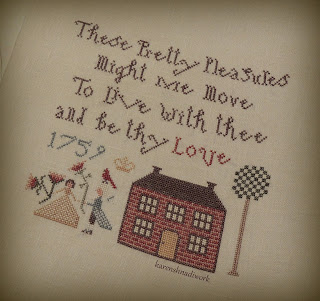 These Pretty Pleasures
Might Me Move
To Live With thee
and be thy Love
1759
karenshnadiwork